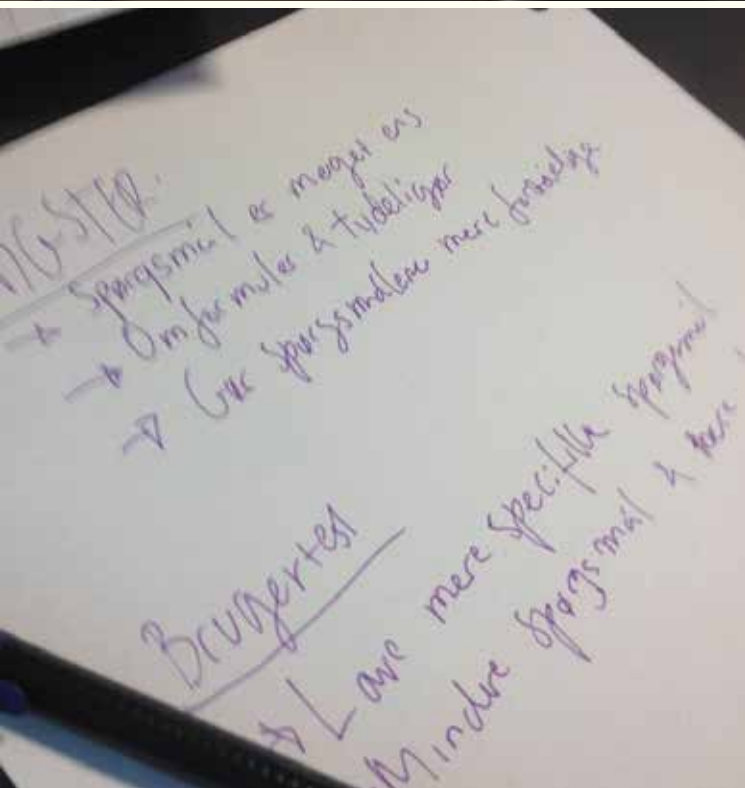 → Spørgsmål er meget ens
→ Omformuler & tydeliger
→ Gør spørgsmålene mere
Brugertest
→ Lave mere specifikke spørgsmål
Mindre spørgsmål &